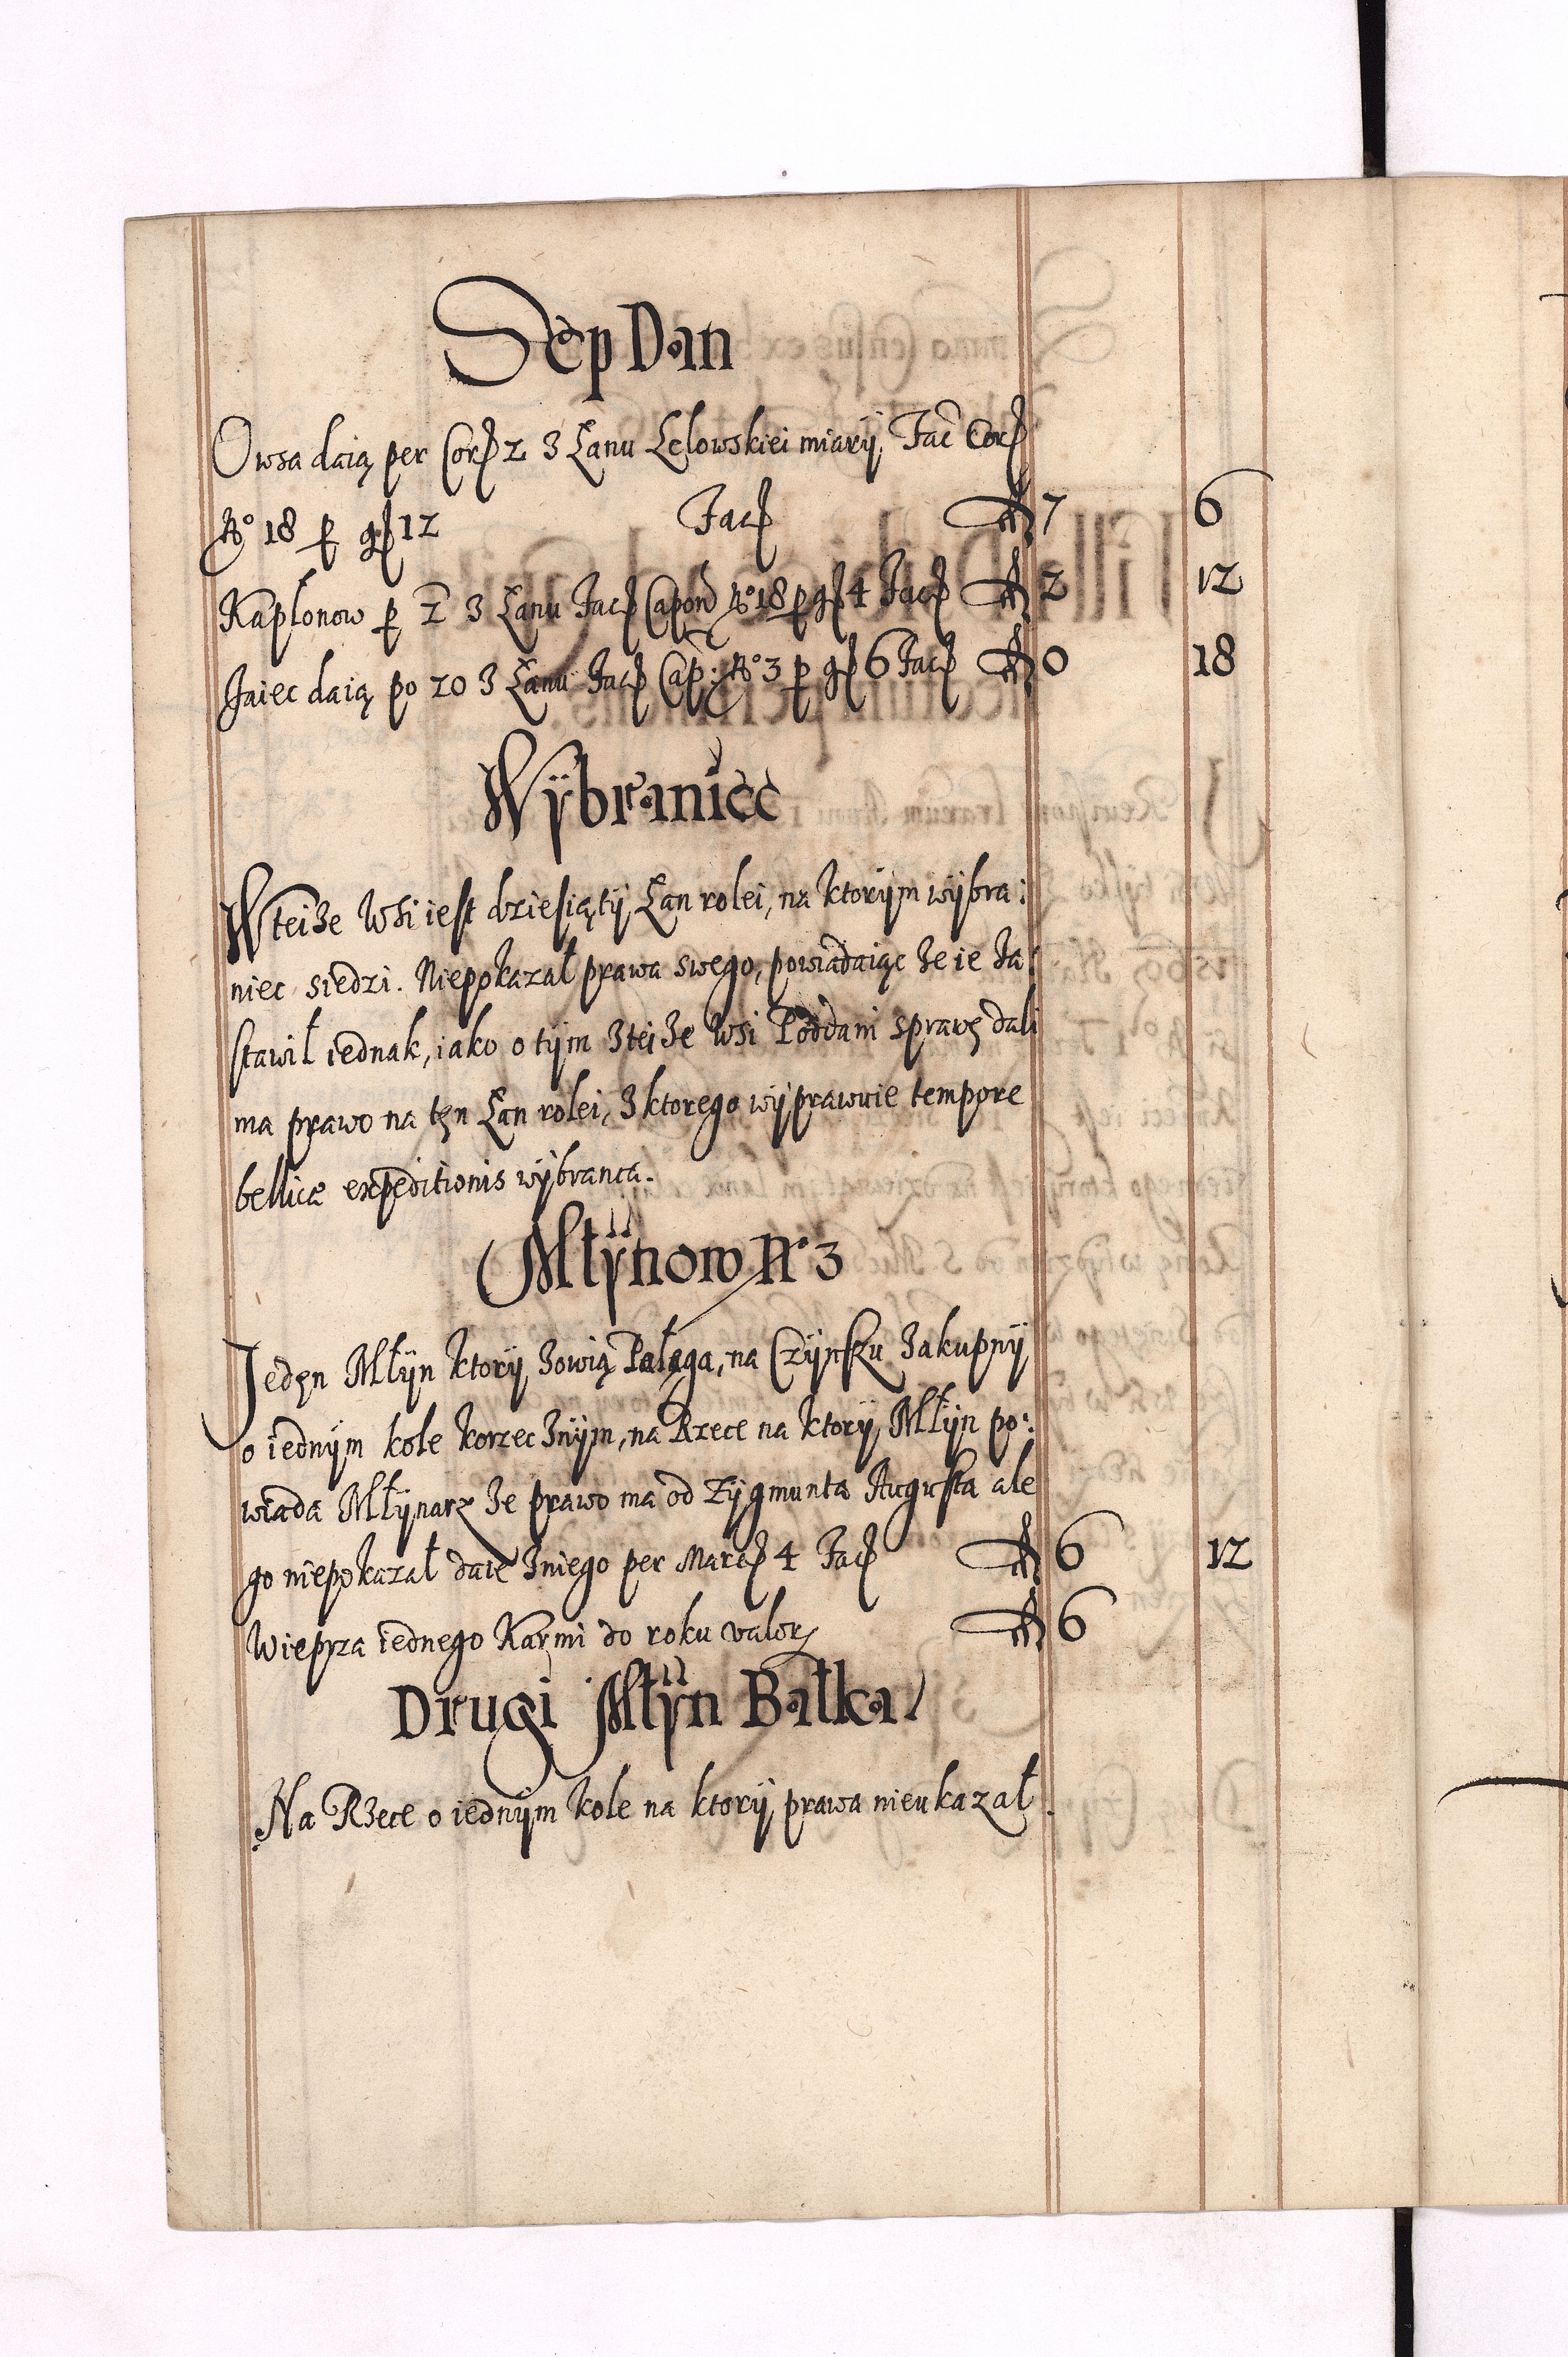 Sep Dan
Owsa daią per Cor 2 3 Łanu Lelowskiei miary, Fac Cor
No 18 p gr 12 Fac fl 7 6
Kapłonow p 2 3 Łanu Fac Capon No 18 p gr 4 Fac fl 2 12
Jaiec daią po 20 3 Łanu Fac Cap: No 3 p gr 6 Fac fl 0 18
Wÿbraniec
W teiże Wsi iest dziesiątÿ Łan rolei, na ktorÿm wÿbra:
niec siedzi. Niepokazał prawa swego, powiadaiąc że ie za:
stawił iednak, iako o tÿm z teiże Wsi Poddani sprawę dali
ma prawo na tęn Łan rolei, z ktorego wÿprawuie tempore
bellicæ expeditionis wÿbranca.
Młÿnow No 3
Jedęn Młÿn ktorÿ zowią Pałąga, na Czÿnszu zakupnÿ
o iednÿm kole korzecznÿm, na Rzece na ktorÿ Młÿn po:
wiada Młÿnarz że prawo ma od Zÿgmunta Augusta ale
go niepokazał daie zniego per Marc 4 Fac fl 6 12
Wieprza iednego Karmi do roku valor fl 6
Drugi Młÿn Bałka
Na Rzece o iednÿm kole na ktorÿ prawa nieukazał.